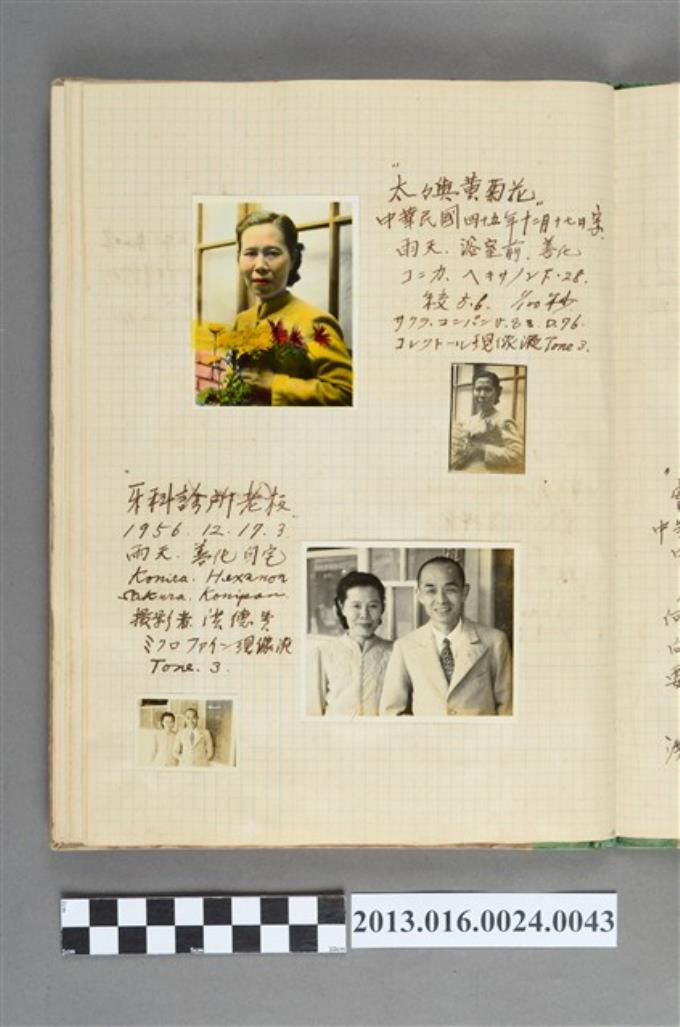 "太々與黄菊花"
中華民國四十五年十二月十七日
雨天．浴室前．善化
コニカ．ヘキサノン F·28.
絞 5.6. 1/100秒
サクラ．コンパン D.76.
コレクトール現像液 Tone 3.
牙科診所老板
1956.12.17.3
雨天．善化自宅
Konica. Hexanon
Sakura. Konipan.
撮影者 洪德
ミクロファイン現像液
Tone. 3.
中
2013.016.0024.0043